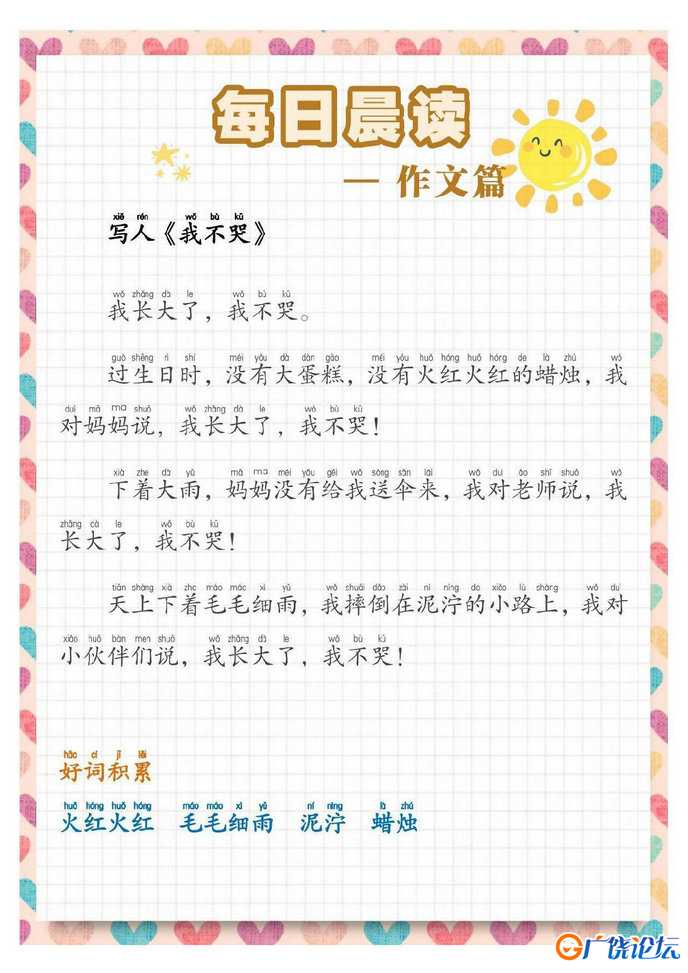 每日晨读
— 作文篇
xiě rén wǒ bù kū
写人《我不哭》
wǒ zhǎng dà le wǒ bù kū
我长大了，我不哭。
guò shēng rì shí méi yǒu dà dàn gāo méi yǒu huǒ hóng huǒ hóng de là zhú wǒ
过生日时，没有大蛋糕，没有火红火红的蜡烛，我
duì mā ma shuō wǒ zhǎng dà le wǒ bù kū
对妈妈说，我长大了，我不哭！
xià zhe dà yǔ mā ma méi yǒu gěi wǒ sòng sǎn lái wǒ duì lǎo shī shuō wǒ
下着大雨，妈妈没有给我送伞来，我对老师说，我
zhǎng dà le wǒ bù kū
长大了，我不哭！
tiān shàng xià zhe máo máo xì yǔ wǒ shuāi dǎo zài ní nìng de xiǎo lù shàng wǒ duì
天上下着毛毛细雨，我摔倒在泥泞的小路上，我对
xiǎo huǒ bàn men shuō wǒ zhǎng dà le wǒ bù kū
小伙伴们说，我长大了，我不哭！
hǎo cí jī lěi
好词积累
huǒ hóng huǒ hóng máo máo xì yǔ ní nìng là zhú
火红火红 毛毛细雨 泥泞 蜡烛
广饶论坛